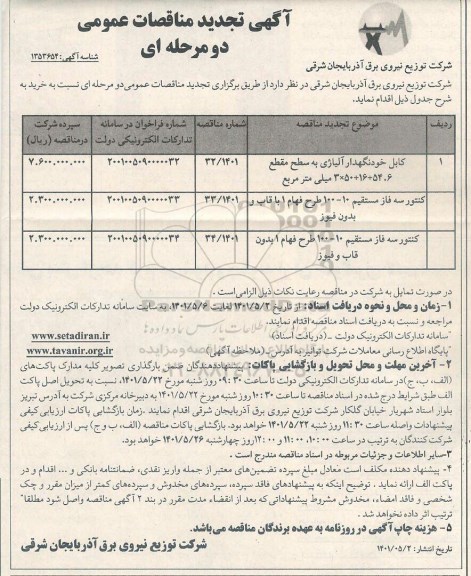 آگهی تجدید مناقصات عمومی
دو مرحله ای
شناسه آگهی: ۱۳۵۳۶۵۴
شرکت توزیع نیروی برق آذربایجان شرقی
شرکت توزیع نیروی برق آذربایجان شرقی در نظر دارد از طریق برگزاری تجدید مناقصات عمومی دو مرحله ای نسبت به خرید به
شرح جدول ذیل اقدام نماید.
ردیف موضوع تجدید مناقصه شماره مناقصه شماره فراخوان در سامانه تدارکات الکترونیکی دولت سپرده شرکت درمناقصه (ریال)
۱ کابل خودنگهدار آلیاژی به سطح مقطع ۳×۵۰+۱۶+۵۴.۶ میلی متر مربع ۳۲/۱۴۰۱ ۲۰۰۱۰۵۰۹۰۰۰۰۰۳۲ ۷.۶۰۰.۰۰۰.۰۰۰
کنتور سه فاز مستقیم ۱۰-۱۰۰ طرح فهام ۱ با قاب و بدون فیوز ۳۳/۱۴۰۱ ۲۰۰۱۰۵۰۹۰۰۰۰۰۳۳ ۲.۳۰۰.۰۰۰.۰۰۰
کنتور سه فاز مستقیم ۱۰-۱۰۰ طرح فهام ۱ بدون قاب و فیوز ۳۴/۱۴۰۱ ۲۰۰۱۰۵۰۹۰۰۰۰۰۳۴ ۲.۳۰۰.۰۰۰.۰۰۰
در صورت تمایل به شرکت در مناقصه رعایت نکات ذیل الزامی است.
۱- زمان و محل و نحوه دریافت اسناد: از تاریخ ۱۴۰۱/۵/۲ لغایت ۱۴۰۱/۵/۶، به سایت سامانه تدارکات الکترونیک دولت
مراجعه و نسبت به دریافت اسناد مناقصه اقدام نمایند.
*سامانه تدارکات الکترونیک دولت - (دریافت اسناد) www.setadiran.ir
*پایگاه اطلاع رسانی معاملات شرکت توانیر به آدرس (ملاحظه آگهی) www.tavanir.org.ir
۲- آخرین مهلت و محل تحویل و بازگشایی پاکات: پیشنهاددهندگان ضمن بارگذاری تصویر کلیه مدارک پاکت‌های
(الف، ب، ج) در سامانه تدارکات الکترونیکی دولت تا ساعت ۰۹:۳۰ روز شنبه مورخ ۱۴۰۱/۵/۲۲، نسبت به تحویل اصل پاکت
الف طبق شرایط درج شده در اسناد مناقصه تا ساعت ۱۰:۳۰ روز شنبه مورخ ۱۴۰۱/۵/۲۲ به دبیرخانه مرکزی شرکت به آدرس تبریز
بلوار استاد شهریار خیابان گلکار شرکت توزیع نیروی برق آذربایجان شرقی اقدام نمایند. زمان بازگشایی پاکات ارزیابی کیفی
پیشنهادات واصله ساعت ۱۱:۳۰ روز شنبه ۱۴۰۱/۵/۲۲ خواهد بود. بازگشایی پاکات مناقصه (الف، ب و ج) پس از ارزیابی کیفی
شرکت کنندگان به ترتیب در ساعت ۱۰:۰۰، ۱۱:۰۰ و ۱۲:۰۰ روز چهارشنبه ۱۴۰۱/۵/۲۶ خواهد بود.
۳- سایر اطلاعات و جزئیات مربوطه در اسناد مناقصه مندرج است.
۴- پیشنهاد دهنده مکلف است معادل مبلغ سپرده تضمین‌های معتبر از جمله واریز نقدی، ضمانتنامه بانکی و ... اقدام و در
پاکت الف ارائه نماید. توضیح اینکه به پیشنهادهای فاقد سپرده، سپرده‌های مخدوش و سپرده‌های کمتر از میزان مقرر و چک
شخصی و فاقد امضاء، مخدوش مشروط پیشنهاداتی که بعد از انقضاء مدت مقرر در بند ۲ آگهی مناقصه واصل شود مطلقا"
ترتیب اثر داده نخواهد شد.
۵- هزینه چاپ آگهی در روزنامه به عهده برندگان مناقصه می‌باشد.
تاریخ انتشار: ۱۴۰۱/۰۵/۲
شرکت توزیع نیروی برق آذربایجان شرقی